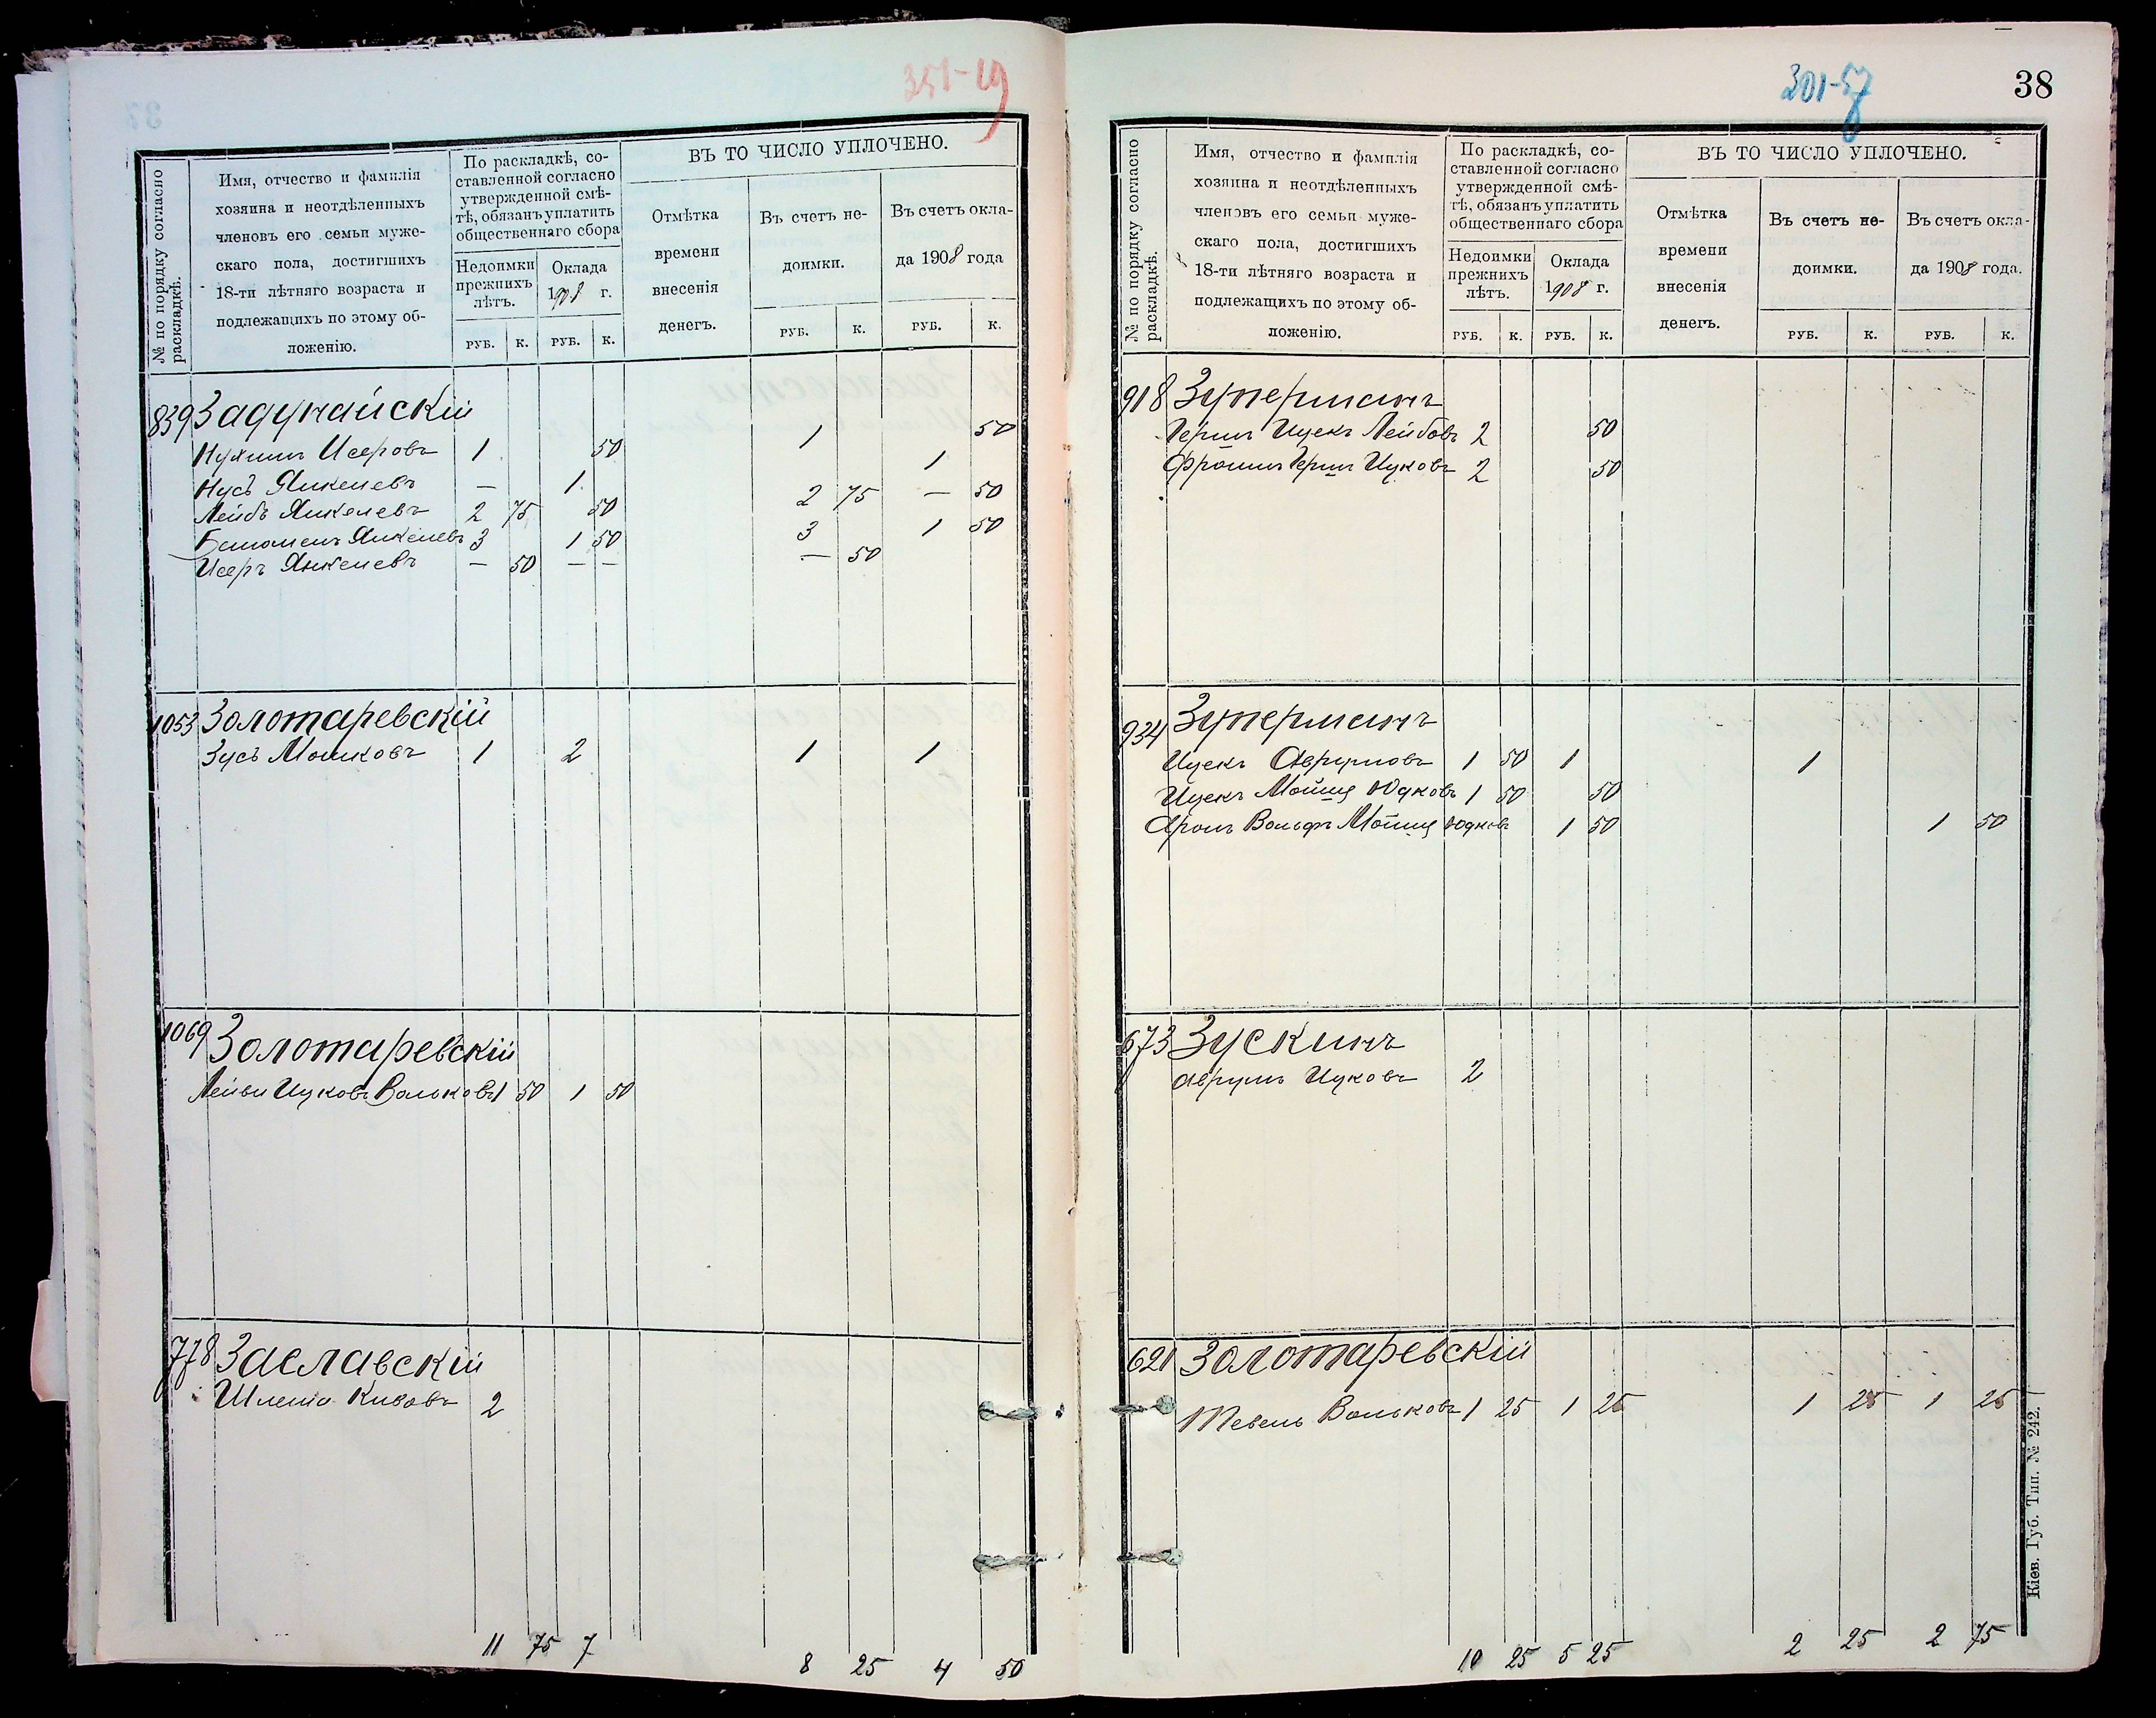 351-19
№ по порядку согласно раскладкѣ.
Имя, отчество и фамилія
хозяина и неотдѣленныхъ
членовъ его семьи муже-
скаго пола, достигшихъ
18-ти лѣтняго возраста и
подлежащихъ по этому об-
ложенію.
По раскладкѣ, со-
ставленной согласно
утвержденной смѣ-
тѣ, обязанъ уплатить
общественнаго сбора
Недоимки
прежнихъ
лѣтъ.
Оклада
1908 г.
РУБ. К. РУБ. К.
ВЪ ТО ЧИСЛО УПЛОЧЕНО.
Отмѣтка
времени
внесенія
денегъ.
Въ счетъ не-
доимки.
Въ счетъ окла-
да 1908 года
РУБ. К. РУБ. К.
839 Задунайскій
Нухимъ Исеровъ 1 50 1 50
Нусь Янкелевъ — 1 1
Лейбъ Янкелевъ 2 75 50 2 75 — 50
Янкелевъ 3 1 50 3 1 50
Исеръ Янкелевъ — 50 — — — 50
1053 Золотаревскій
Зусь Мошковъ 1 2 1 1
1069 Золотаревскій
Лейви Ицковъ Вольковъ 1 50 1 50
778 Заславскій
Шлема Кивовъ 2
11 75 7 8 25 4 50
301-57
38
№ по порядку согласно раскладкѣ.
Имя, отчество и фамилія
хозяина и неотдѣленныхъ
членовъ его семьи муже-
скаго пола, достигшихъ
18-ти лѣтняго возраста и
подлежащихъ по этому об-
ложенію.
По раскладкѣ, со-
ставленной согласно
утвержденной смѣ-
тѣ, обязанъ уплатить
общественнаго сбора
Недоимки
прежнихъ
лѣтъ.
Оклада
1908 г.
РУБ. К. РУБ. К.
ВЪ ТО ЧИСЛО УПЛОЧЕНО.
Отмѣтка
времени
внесенія
денегъ.
Въ счетъ не-
доимки.
Въ счетъ окла-
да 1908 года.
РУБ. К. РУБ. К.
918 Зуперманъ
Герш Ицекъ Лейбовъ 2 50
Фроимъ Герш Ицковъ 2 50
934 Зуперманъ
Ицекъ Аврумовъ 1 50 1 1
Ицекъ Мойше Юдковъ 1 50 50
Аронъ Вольфъ Мойше Юдковъ 1 50 1 50
673 Зускинъ
Аврумъ Ицковъ 2
621 Золотаревскій
Тевель Вольковъ 1 25 1 25 1 25 1 25
10 25 5 25 2 25 2 75
Кіев. Губ. Тип. № 242.